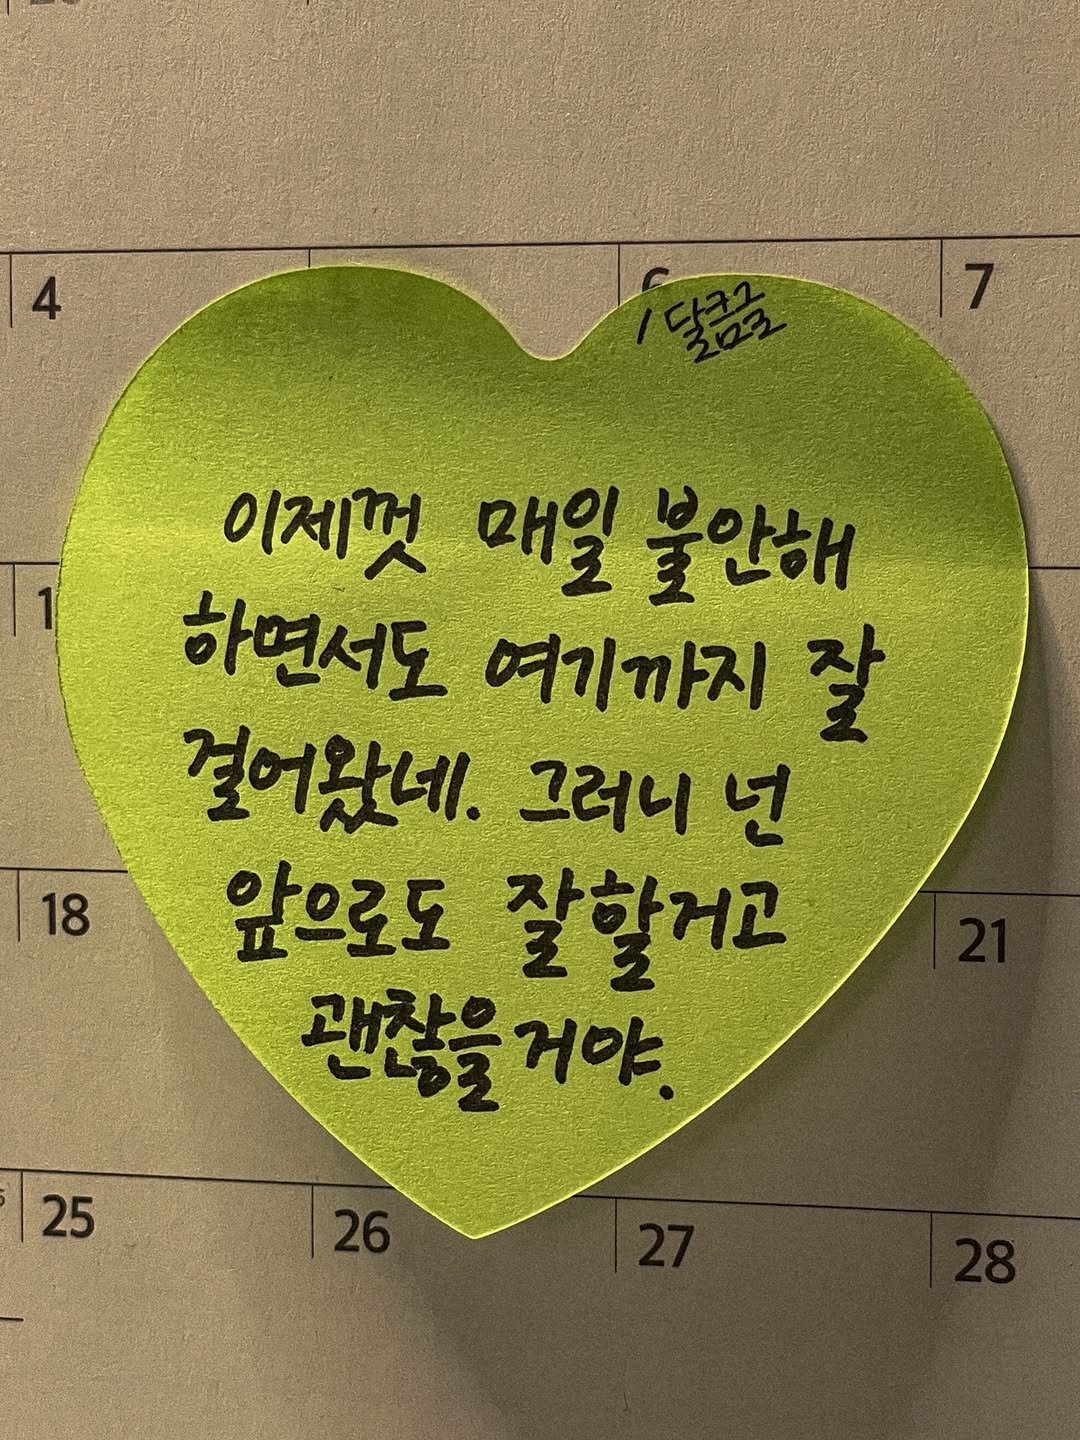 4
6
7
/달큼글
이제껏 매일 불안해
하면서도 여기까지 잘
걸어왔네. 그러니 넌
앞으로도 잘할거고
괜찮을거야.
18
21
25
26
27
28